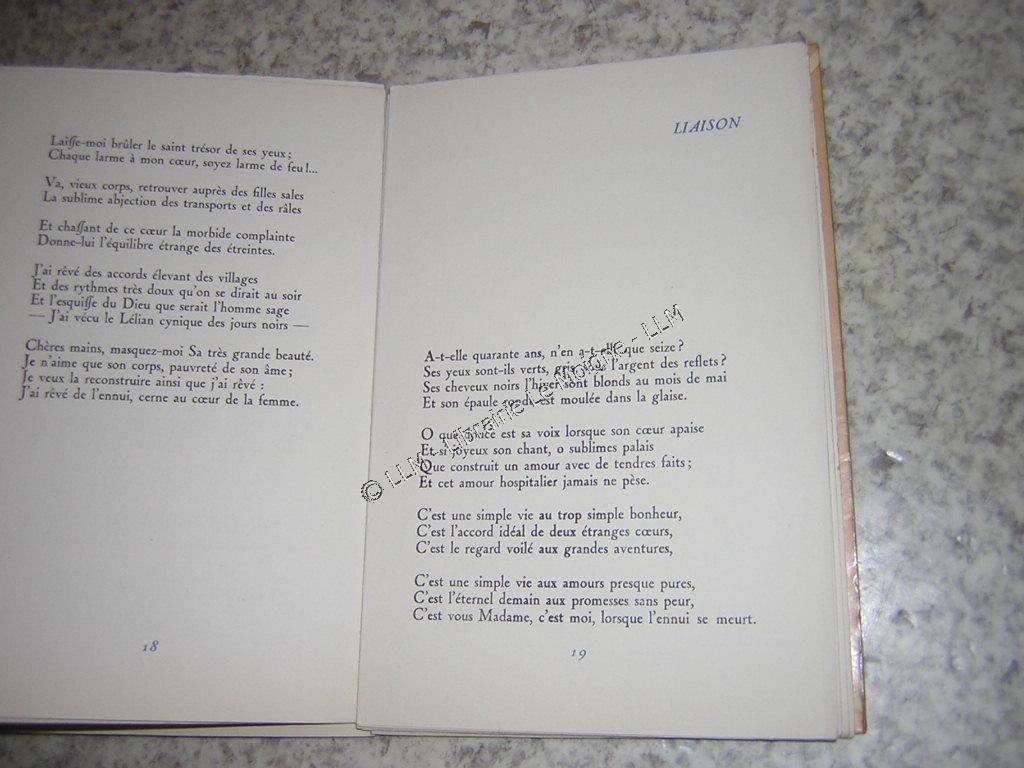 Laisse-moi brûler le saint trésor de ses yeux ;
Chaque larme à mon cœur, soyez larme de feu !...
Va, vieux corps, retrouver auprès des filles sales
La sublime abjection des transports et des râles
Et chassant de ce cœur la morbide complainte
Donne-lui l'équilibre étrange des étreintes.
J'ai rêvé des accords élevant des villages
Et des rythmes très doux qu'on se dirait au soir
Et l'esquisse du Dieu que serait l'homme sage
— J'ai vécu le Lélian cynique des jours noirs —
Chères mains, masquez-moi Sa très grande beauté.
Je n'aime que son corps, pauvreté de son âme ;
Je veux la reconstruire ainsi que j'ai rêvé :
J'ai rêvé de l'ennui, cerne au cœur de la femme.
18
LIAISON
A-t-elle quarante ans, n'en a-t-elle que seize ?
Ses yeux sont-ils verts, gris, l'argent des reflets ?
Ses cheveux noirs l'hiver sont blonds au mois de mai
Et son épaule ronde est moulée dans la glaise.
O que douce est sa voix lorsque son cœur apaise
Et si joyeux son chant, o sublimes palais
Que construit un amour avec de tendres faits ;
Et cet amour hospitalier jamais ne pèse.
C'est une simple vie au trop simple bonheur,
C'est l'accord idéal de deux étranges cœurs,
C'est le regard voilé aux grandes aventures,
C'est une simple vie aux amours presque pures,
C'est l'éternel demain aux promesses sans peur,
C'est vous Madame, c'est moi, lorsque l'ennui se meurt.
19
© LLM - Librairie Le Moigne - LLM